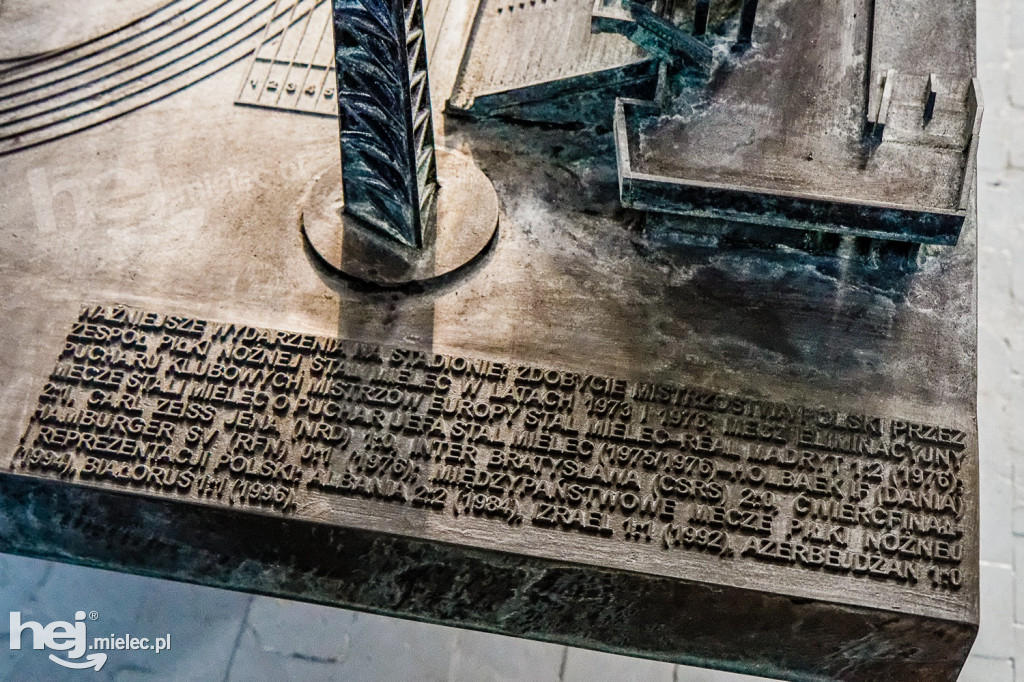 1 2 3 4 5
WAŻNIEJSZE WYDARZENIA NA STADIONIE: ZDOBYCIE MISTRZOSTWA POLSKI PRZEZ
ZESPÓŁ PIŁKI NOŻNEJ STAL MIELEC W LATACH 1973 I 1976; MECZ ELIMINACYJNY
PUCHARU KLUBOWYCH MISTRZÓW EUROPY STAL MIELEC–REAL MADRYT 1:2 (1976);
MECZE STALI MIELEC O PUCHAR UEFA STAL MIELEC (1975/1976) – HOLBAEK IF (DANIA)
2:1, CARL ZEISS JENA (NRD) 1:0, INTER BRATYSŁAWA (CSRS) 2:0; ĆWIERĆFINAŁ-
HAMBURGER SV (RFN) 0:1 (1976); MIĘDZYPAŃSTWOWE MECZE PIŁKI NOŻNEJ
REPREZENTACJI POLSKI: ALBANIA 2:2 (1984), IZRAEL 1:1 (1992), AZERBEJDŻAN 1:0
(1994), BIAŁORUŚ 1:1 (1996)
hej®.mielec.pl